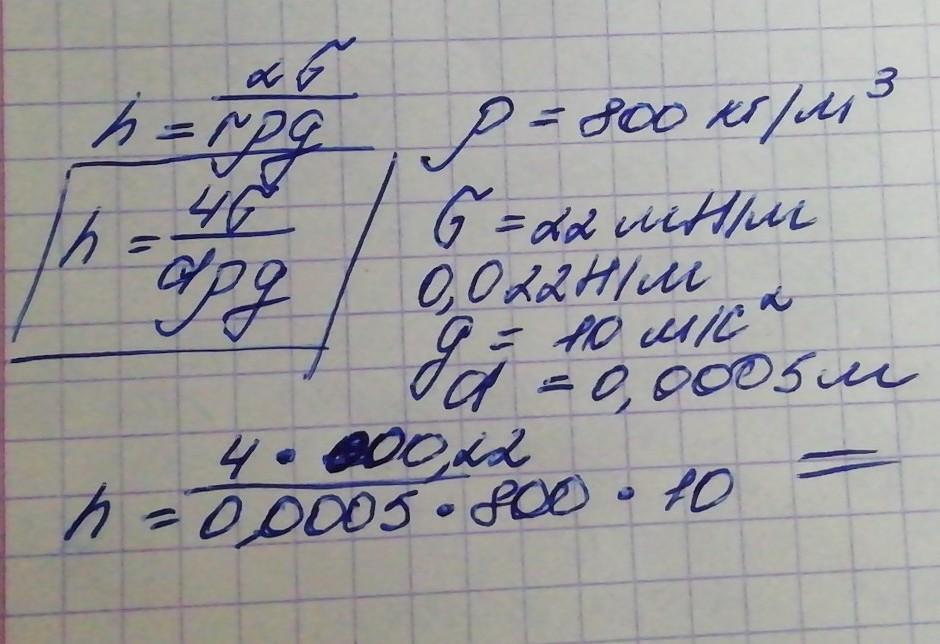 h = 2σ/rρg
ρ = 800 кг/м³
h = 4σ/dρg
σ = 22 мН/м
0,022Н/м
g = 10 м/с²
d = 0,0005м
h = 4 · 00,22/0,0005 · 800 · 10 =